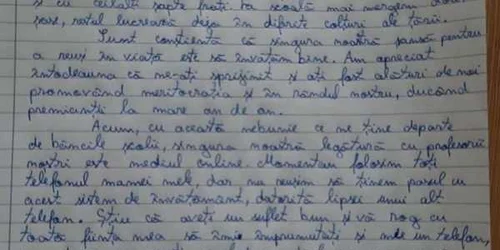 și cu ceilalți șapte frați la școală mai mergem doar
șase, restul lucrează deja în diferite colțuri ale țării.
Sunt conștientă că singura noastră șansă pentru
a reuși în viață este să învățăm bine. Am apreciat
întodeauna că ne-ați sprijinit și ați fost alături de noi
promovând meritocrația și în rândul nostru, ducând
premianții la mare an de an.
Acum, cu această nebunie ce ne ține departe
de băncile școlii, singura noastră legătură cu profesorii
noștri este mediul online. Momentan folosim toți
telefonul mamei mele, dar nu reușim să ținem pasul cu
acest sistem de învățământ, datorită lipsei unui alt
telefon. Știu că aveți un suflet bun și vă rog cu
toată ființa mea să îmi împrumutați și mie un telefon